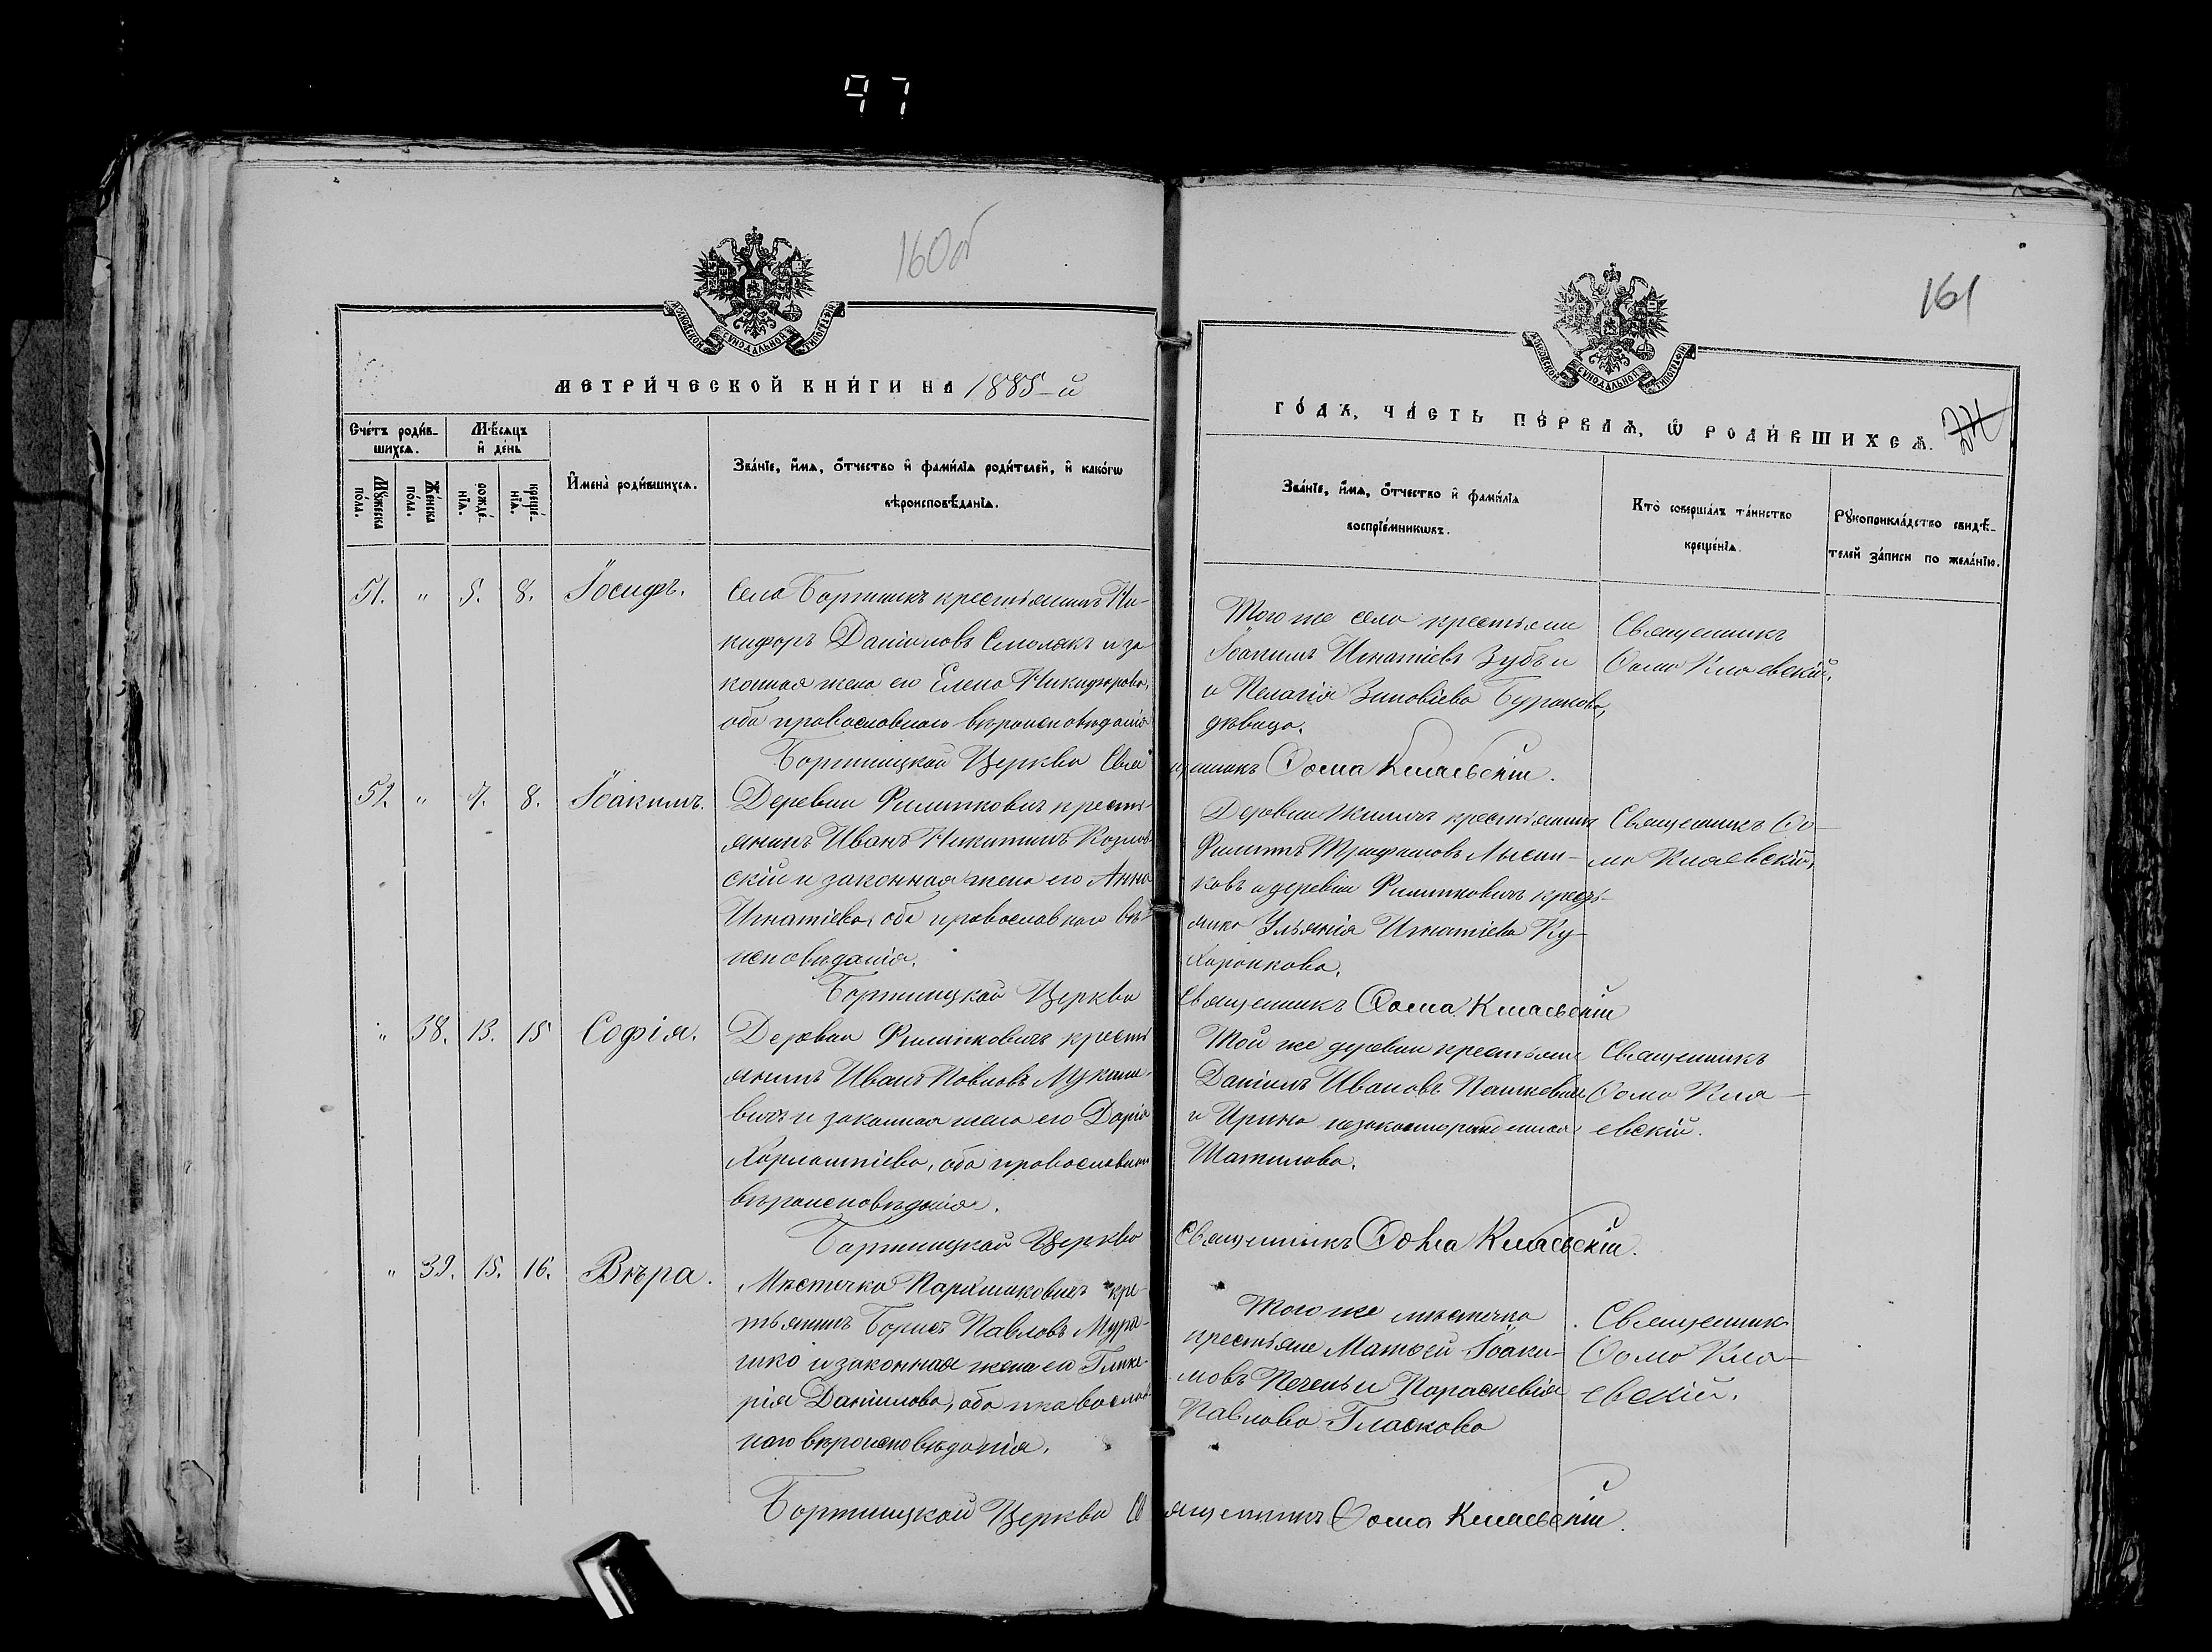 97
160об
161
МОСКОВСКОЙ СѴНОДАЛЬНОЙ ТИПОГРАФІИ
МОСКОВСКОЙ СѴНОДАЛЬНОЙ ТИПОГРАФІИ
МЕТРИ́ЧЕСКОЙ КНИ́ГИ НА 1885-й
ГО́ДЪ, ЧА́СТЬ ПЕ́РВАѦ, Ѡ҆ РОДИ́ВШИХСѦ.
Сче́тъ роди́в-
шихсѧ.
Мꙋ́жеска по́ла.
Же́нска по́ла.
Мѣ́сѧцъ
и҆ де́нь
рожде́-
нїѧ.
креще́-
нїѧ.
И҆мена̀ роди́вшихсѧ.
Зва́нїе, и҆́мѧ, ѻ҆́тчество и҆ фамѝлїѧ роди́телей, и҆ како́гѡ
вѣроисповѣ́данїѧ.
Зва́нїе, и҆́мѧ, ѻ҆́тчество и҆ фамѝлїѧ
воспрїе́мникѡвъ.
Кто̀ соверша́лъ та́инство
креще́нїѧ.
Рꙋкоприкла́дство свидѣ́-
телей за́писи по жела́нїю.
51. " 5. 8. Іосифъ.
Села Бортникъ крестьянинъ Ни-
кифоръ Даніиловъ Смолякъ и за
конная жена его Елена Никифорова,
оба православнаго вѣроисповѣданія
Того же села крестьяне
Іоакимъ Игнатіевъ Зубъ и
и Пелагія Зиновіева Буракова,
дѣвица.
Священникъ
Ѳома Клаевскій.
Бортницкой Церкви Священникъ Ѳома Клаевскій.
52. " 7. 8. Іоакимъ.
Деревни Филипковичъ кресть-
янинъ Иванъ Никитинъ Козлов-
скій и законная жена его Анна
Игнатіева, оба православнаго вѣ-
исповѣданія.
Деревни Жиличъ крестьянинъ
Филиппъ Трифановъ Лысни-
ковъ и деревни Филипковичъ кресть-
янка Ульянія Игнатіева Ку-
харонкова.
Священникъ Ѳо-
ма Клаевскій,
Бортницкой Церкви Священникъ Ѳома Клаевскій
" 38. 13. 15 Софія.
Деревни Филипковичъ кресть
янинъ Иванъ Павловъ Лукаше-
вичъ и законная жена его Дарія
Харлампіева, оба православнаго
вѣроисповѣданія.
Той же деревни крестьяне
Даніилъ Ивановъ Пашкевичъ
и Ирина незаконнорожденная
Шатилова.
Священникъ
Ѳома Кла-
евскій.
Бортницкой Церкви Священникъ Ѳома Клаевскій.
" 39. 15. 16. Вѣра.
Мѣстечка кре-
тьянинъ Борисъ Павловъ Мура-
шко и законная жена его Глике-
рія Даніилова, оба православ-
наго вѣроисповѣданія.
Того же мѣстечка
крестьяне Матѳей Іоаки-
мовъ Печень и Параскевія
Павлова Гласкова
Священникъ
Ѳома Кла-
евскій.
Бортницкой Церкви Священникъ Ѳома Клаевскій.